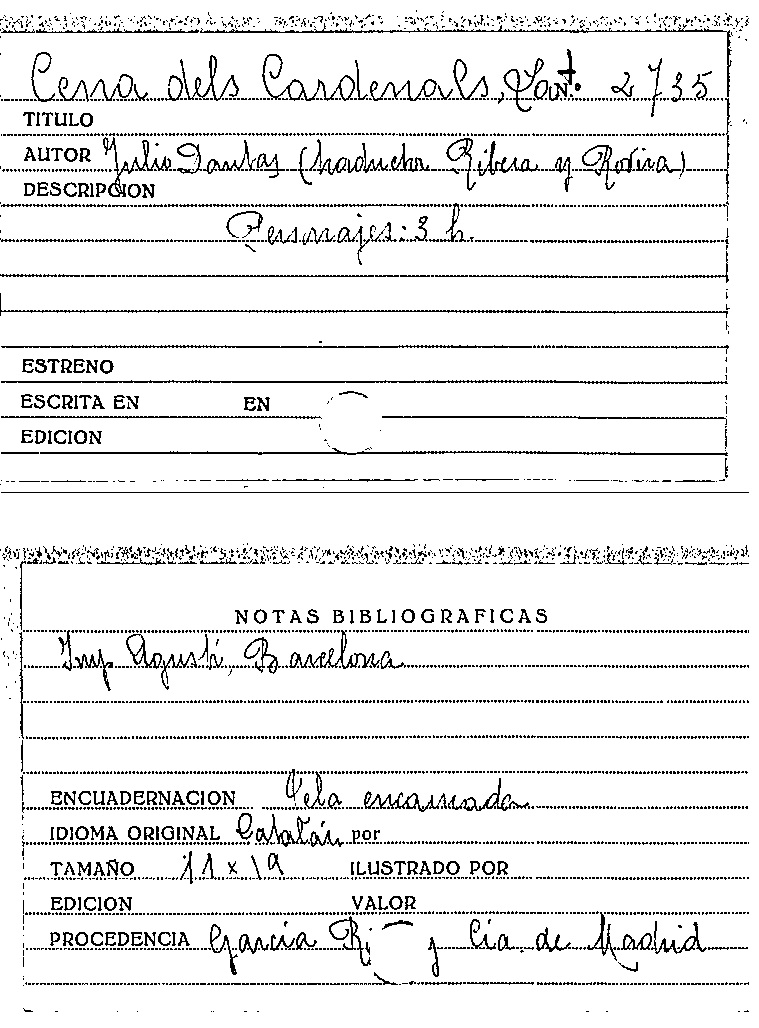 Cena dels Cardenals, Cant. 2735
TITULO
AUTOR Julio Dantas (traductor Ribera y Rovira)
DESCRIPCION
Personajes: 3 h.
ESTRENO
ESCRITA EN EN
EDICION
NOTAS BIBLIOGRAFICAS
Imp. Agustí, Barcelona
ENCUADERNACION Tela encarnada
IDIOMA ORIGINAL Catalán por
TAMAÑO 11 x 19 ILUSTRADO POR
EDICION VALOR
PROCEDENCIA García y Cia. de Madrid